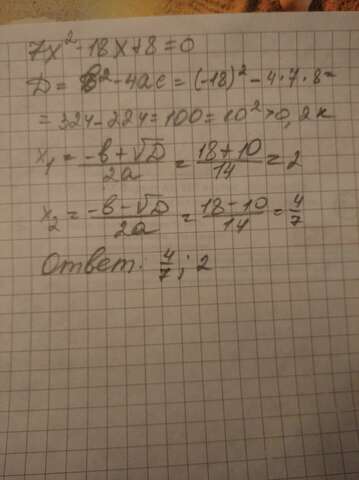 7x² - 18x + 8 = 0
D = b² - 4ac = (-18)² - 4·7·8 =
= 324 - 224 = 100 = 10² > 0, 2к
x₁ = (-b + √D)/2a = (18 + 10)/14 = 2
x₂ = (-b - √D)/2a = (18 - 10)/14 = 4/7
Ответ: 4/7; 2